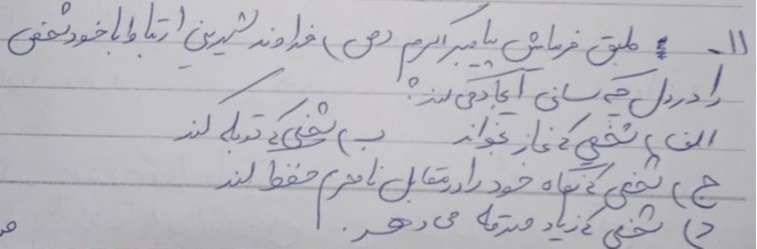 ۱۱- طبق فرمایش پیامبر اکرم (ص) خداوند شیرینی ارتباط با خود شخصی
را در دل چه کسانی ایجاد می کند؟
الف) شخصی که نماز بخواند ب) شخصی که توبه کند
ج) شخصی که نگاه خود را در مقابل نامحرم حفظ کند
د) شخصی که زیاد صدقه می دهد.